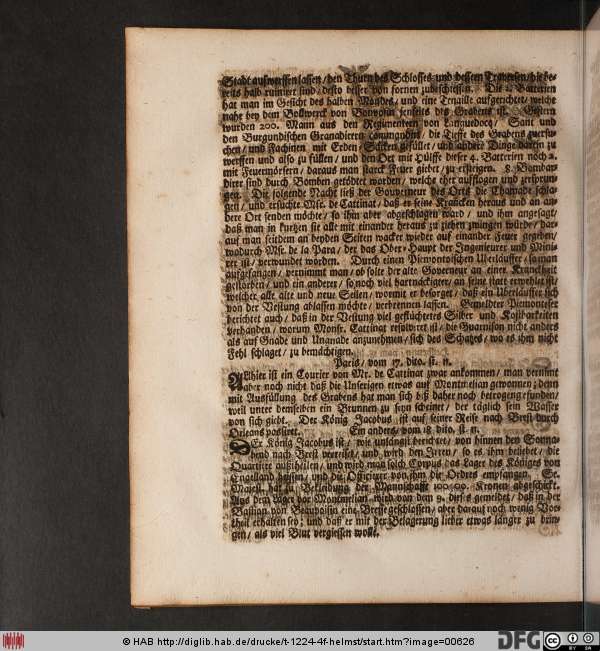 Stadt auswerffen lassen / den Thurn des Schlosses und dessen Traversen / die be-
reits halb ruiniret sind / desto besser von fornen zubeschiessen. Die 2. Batterien
hat man im Gesicht des halben Mondes / und eine Tenaille aufgerichtet / welche
nahe bey dem Bollwerck von Bonvoisin jenseits des Grabens ist. Gestern
wurden 200. Mann aus den Regimentern von Languedocq / Sault und
den Burgundischen Granadierern commandirt / die Tieffe des Grabens zuersu-
chen / und Fachinen mit Erden / Säcken gefüllet / und andere Dinge darein zu
werffen und also zu füllen / und den Ort mit Hülffe dieser 4. Batterien noch 2.
mit Feuermörsern / daraus man starck Feuer giebet / zu ersteigen. 8. Bombar-
direr sind durch Bomben getödtet worden / welche per aufflogen und zersprun-
gen. Die folgende Nacht ließ der Gouverneur des Orts die Chamade schla-
gen / und ersuchte Msr. de Cattinat / daß er seine Krancken heraus und an an-
dere Ort senden möchte / so ihm aber abgeschlagen ward / und ihm angesagt /
daß man in kurtzen sie alle mit einander heraus zu ziehen zwingen würde / dar-
auf man seitdem an beyden Seiten wacker wieder auf einander Feuer gegeben /
wadurch Msr. de la Para / der das Ober-Haupt der Ingenieurer und Mini-
rer ist / verwundet worden. Durch einen Piemontosischen Uberläuffer / so man
aufgefangen / vernimmt man / ob solte der alte Governeur an einer Kranckheit
gestorben / und ein anderer / so noch viel hartnäckigter / an seine statt erwehlet ist /
welcher alle alte und neue Seilen / wormit er besorget / daß ein Uberläuffer sich
von der Vestung ablassen möchte / verbrennen lassen. Gemeldter Piemonteser
berichtet auch / daß in der Vestung viel geflüchtetes Silber und Kostbarkeiten
verhanden / worum Monsr. Cattinat resolviret ist / die Guarnison nicht anders
als auf Gnade und Unanade anzunehmen / sich des Schatzes / wo es ihm nicht
Fehl schlaget / zu bemächtigen.
Paris / vom 17. dito. st. n.
Allhier ist ein Courier von Mr. de Cattinat zwar ankommen / man vernimt
aber noch nicht daß die Unserigen etwas auf Montmelian gewonnen; denn
mit Ausfüllung des Grabens hat man sich biß daher noch betrogen gefunden /
weil unter demselben ein Brunnen zu seyn scheinet / der täglich sein Wasser
von sich giebt. Der König Jacobus ist auf seiner Reise nach Brest durch
Orleans passiret. Ein anders / vom 18 dito. st. n.
DEr König Jacobus ist / wie unlängst berichtet / von hinnen den Sonna-
bend nach Brest verreiset / und wird den Irren / so es ihm beliebet / die
Quartiere außtheilen / und wird man solch Corpus das Lager des Königes von
Engelland heissen / und die Officirer von ihm die Ordres empfangen. Se.
Majest. hat zu Bekleidung der Mannschafft 100000. Kronen abgeschickt.
Aus dem Lager vor Montmelian wird vom 9. dieses gemeldet / daß in der
Bastian von Beauvoisin eine Bresse geschlossen / aber daraus noch wenig Vor-
theil erhalten sey; und daß er mit der Belagerung lieber etwas länger zu brin-
gen / als viel Blut vergiessen wolle.
© HAB http://diglib.hab.de/drucke/t-1224-4f-helmst/start.htm?image=00626
DFG
CC BY SA